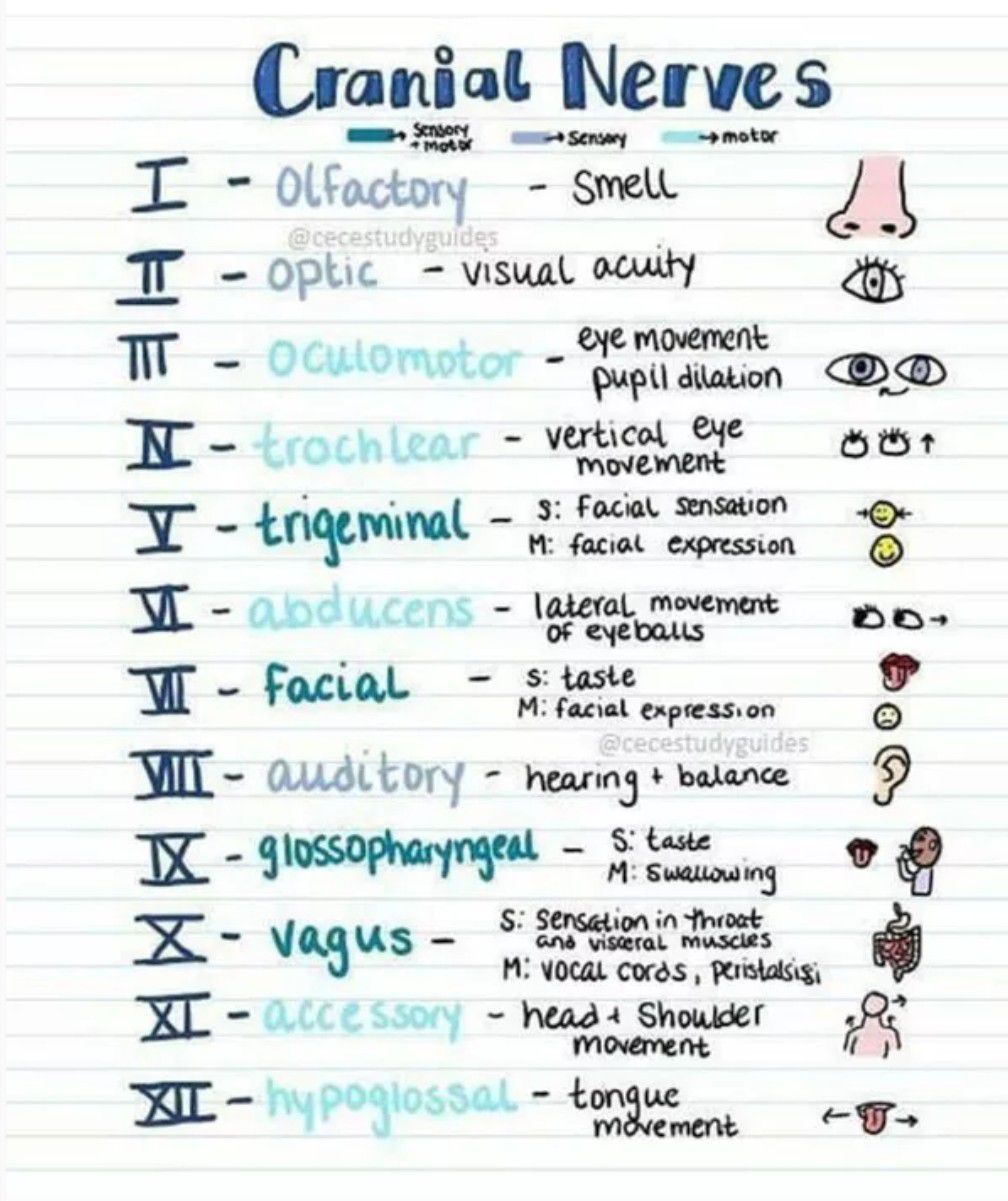 Cranial Nerves
→ Sensory + motor → Sensory → motor
I - Olfactory - Smell
@cecestudyguides
II - optic - visual acuity
III - Oculomotor - eye movement
pupil dilation
IV - trochlear - vertical eye
movement
V - trigeminal - S: Facial sensation
M: facial expression
VI - abducens - lateral movement
of eyeballs
VII - facial - S: taste
M: facial expression
@cecestudyguides
VIII - auditory - hearing + balance
IX - glossopharyngeal - S: taste
M: Swallowing
X - vagus - S: Sensation in throat
and visceral muscles
M: vocal cords, peristalsisi
XI - accessory - head + Shoulder
movement
XII - hypoglossal - tongue
movement